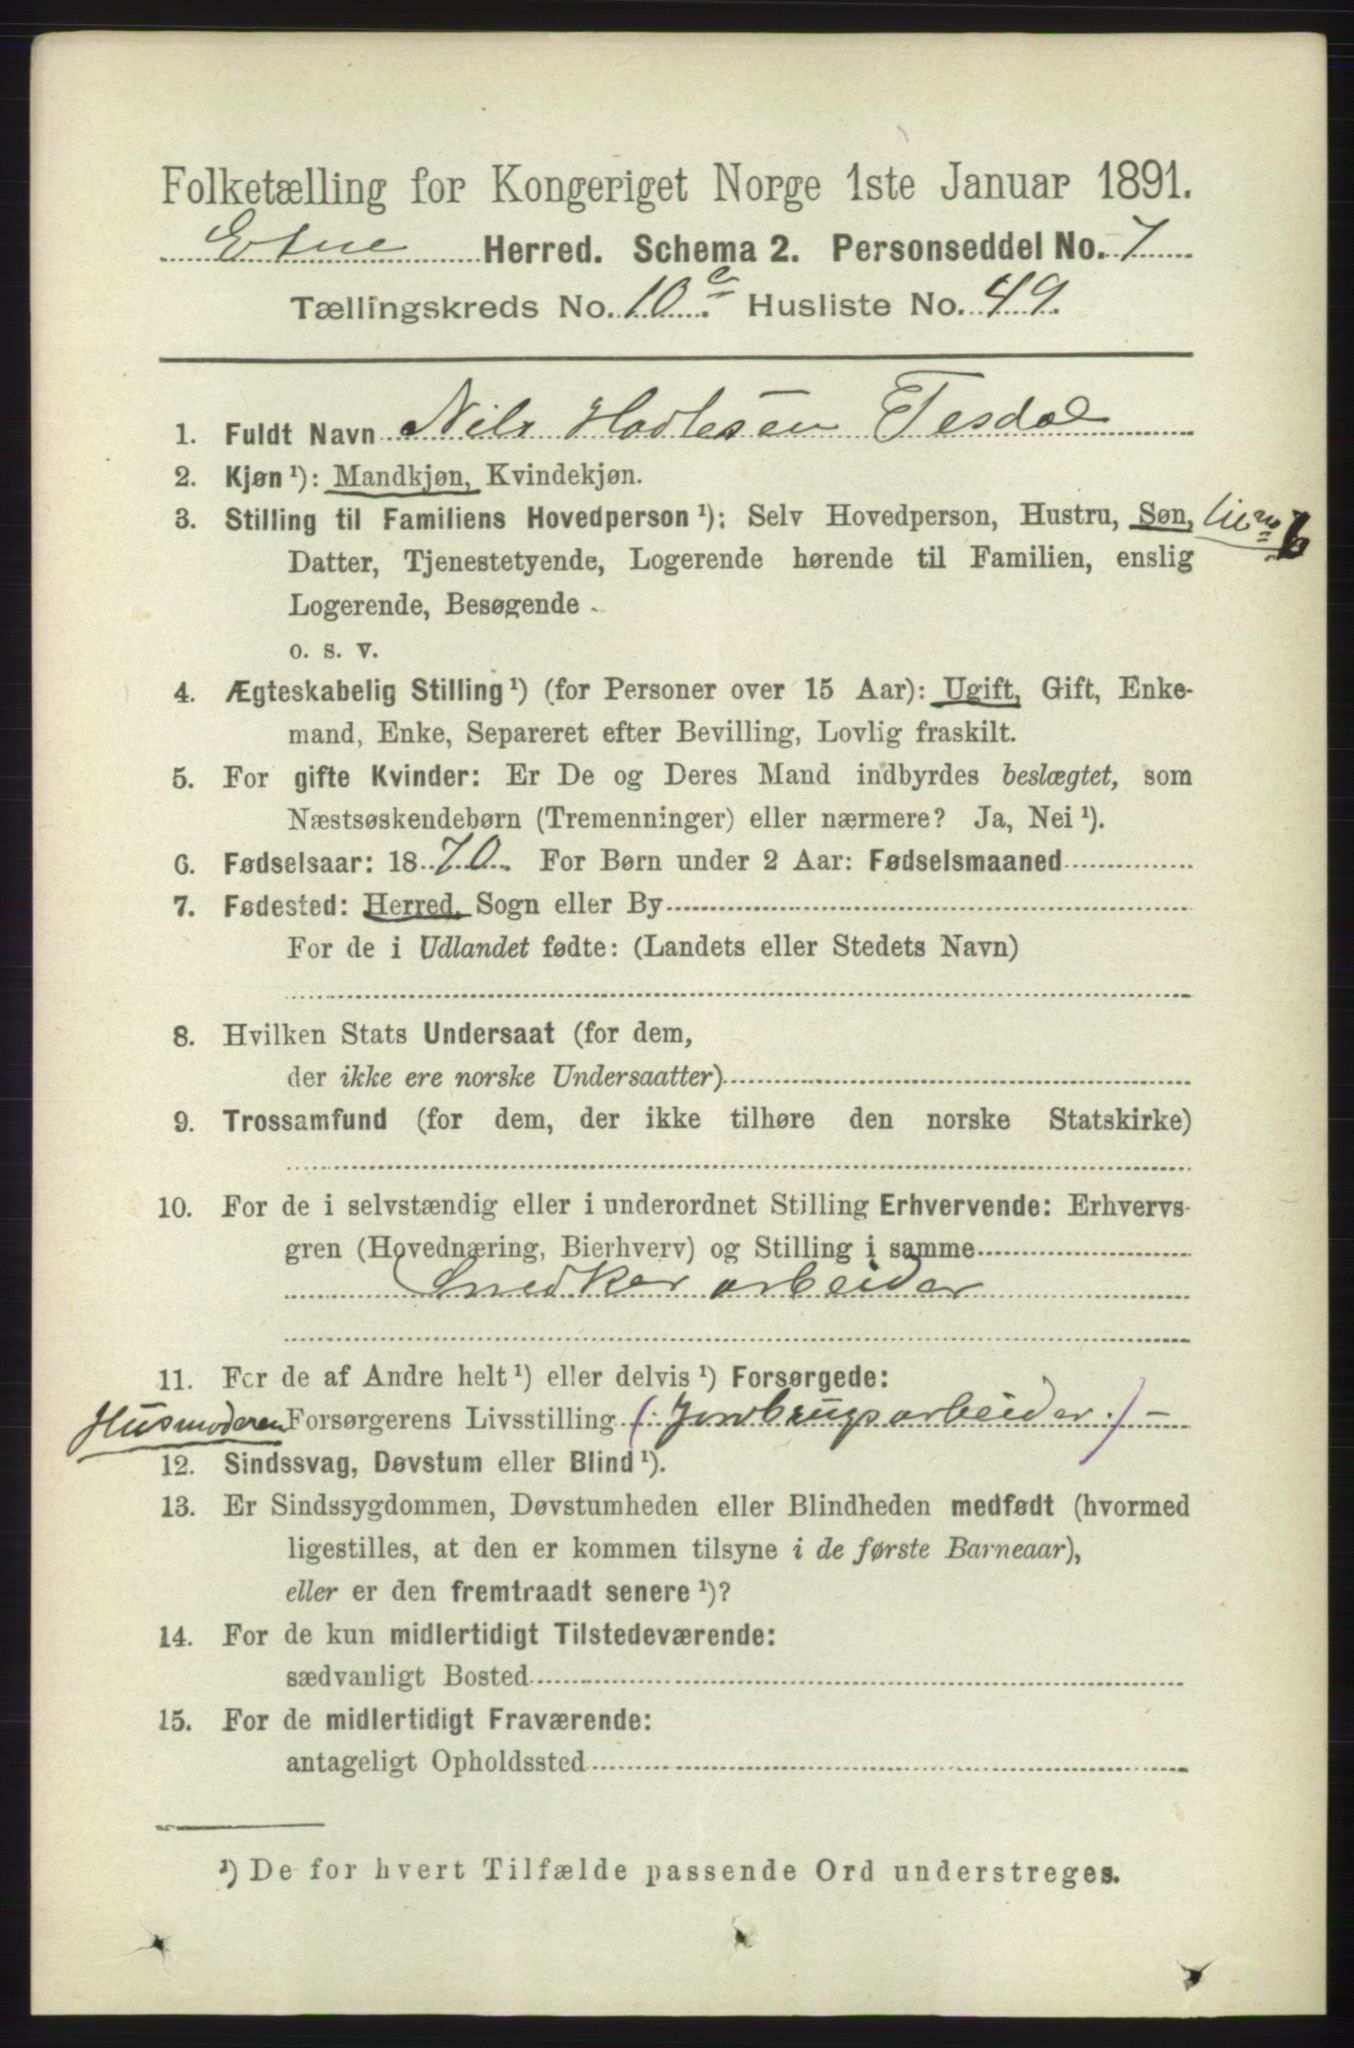 Folketælling for Kongeriget Norge 1ste Januar 1891.
Etne Herred. Schema 2. Personseddel No. 7
Tællingskreds No. 10 Husliste No. 49.
1. Fuldt Navn Nils Hadlesen Tesdal
2. Kjøn ¹): Mandkjøn, Kvindekjøn.
3. Stilling til Familiens Hovedperson ¹): Selv Hovedperson, Hustru, Søn,
Datter, Tjenestetyende, Logerende hørende til Familien, enslig
Logerende, Besøgende
o. s. v.
4. Ægteskabelig Stilling ¹) (for Personer over 15 Aar): Ugift, Gift, Enke-
mand, Enke, Separeret efter Bevilling, Lovlig fraskilt.
5. For gifte Kvinder: Er De og Deres Mand indbyrdes beslægtet, som
Næstsøskendebørn (Tremenninger) eller nærmere? Ja, Nei ¹).
6. Fødselsaar: 1870. For Børn under 2 Aar: Fødselsmaaned
7. Fødested: Herred, Sogn eller By
For de i Udlandet fødte: (Landets eller Stedets Navn)
8. Hvilken Stats Undersaat (for dem,
der ikke ere norske Undersaatter)
9. Trossamfund (for dem, der ikke tilhøre den norske Statskirke)
10. For de i selvstændig eller i underordnet Stilling Erhvervende: Erhvervs-
gren (Hovednæring, Bierhverv) og Stilling i samme
Snedker arbeider
11. For de af Andre helt ¹) eller delvis ¹) Forsørgede:
Husmoderen Forsørgerens Livsstilling (Jordbrugsarbeider.) -
12. Sindssvag, Døvstum eller Blind ¹).
13. Er Sindssygdommen, Døvstumheden eller Blindheden medfødt (hvormed
ligestilles, at den er kommen tilsyne i de første Barneaar),
eller er den fremtraadt senere ¹)?
14. For de kun midlertidigt Tilstedeværende:
sædvanligt Bosted
15. For de midlertidigt Fraværende:
antageligt Opholdssted
¹) De for hvert Tilfælde passende Ord understreges.